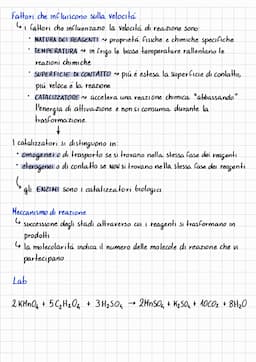 Fattori che influiscono sulla velocità
↳ i fattori che influenzano la velocità di reazione sono:
• NATURA DEI REAGENTI ↝ proprietà fisiche e chimiche specifiche
• TEMPERATURA ↝ in frigo le basse temperature rallentano le
reazioni chimiche
• SUPERFICIE DI CONTATTO ↝ più è estesa la superficie di contatto,
più veloce è la reazione
• CATALIZZATORE ↝ accelera una reazione chimica "abbassando"
l'energia di attivazione e non si consuma durante la
trasformazione
↓
I catalizzatori si distinguono in:
• omogenei o di trasporto se si trovano nella stessa fase dei reagenti
• eterogenei o di contatto se NON si trovano nella stessa fase dei reagenti
↳ gli ENZIMI sono i catalizzatori biologici
Meccanismo di reazione
↳ successione degli stadi attraverso cui i reagenti si trasformano in
prodotti
↳ la molecolarità indica il numero delle molecole di reazione che vi
partecipano
Lab
2KMnO₄ + 5C₂H₂O₄ + 3H₂SO₄ → 2MnSO₄ + K₂SO₄ + 10CO₂ + 8H₂O